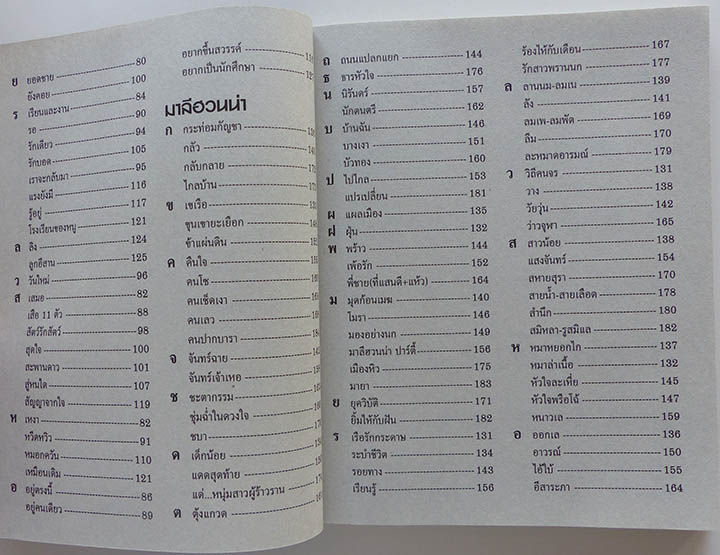 ย ยอดชาย 80
ยังคอย 100
ร เรียนและงาน 84
รอ 90
รักเดียว 94
รักบอด 105
เราจะกลับมา 95
แรงยังมี 116
รู้อยู่ 117
โรงเรียนของหนู 121
ล ลิง 124
ลูกอีสาน 125
ว วันใหม่ 96
ส เสมอ 82
เสือ 11 ตัว 88
สัตว์รักสัตว์ 98
สุดใจ 100
สะพานดาว 101
สู่หนใด 107
สัญญาจากใจ 119
ห เหงา 82
หวีดหวิว 91
หมอกควัน 110
เหมือนเดิม 121
อ อยู่ตรงนี้ 86
อยู่คนเดียว 89
อยากขึ้นสวรรค์
อยากเป็นนักศึกษา
มาลีฮวนน่า
ก กระท่อมกัญชา
กลัว
กลับกลาย
ไกลบ้าน
ข เขเรือ
ขุนเขายะเยือก
ข้าแผ่นดิน
ค คืนใจ
คนโซ
คนเช็ดเงา
คนเลว
คนปากบารา
จ จันทร์ฉาย
จันทร์เจ้าเหอ
ช ชะตากรรม
ชุ่มฉ่ำในดวงใจ
ชบา
ด เด็กน้อย
แดดสุดท้าย
แด่...หนุ่มสาวผู้ร้าวราน
ต ตุ้งแกวด
ถ ถนนแปลกแยก 144
ธ ธารหัวใจ 176
น นิรันดร์ 157
นักดนตรี 162
บ บ้านฉัน 146
บางเงา 151
บัวทอง 160
ป ไปไกล 153
แปรเปลี่ยน 181
ผ แผลเมือง 135
ฝ ฝุ่น 132
พ พร้าว 144
เพ้อรัก 152
พี่ชาย(ที่แสนดี+แห้ว) 164
ม มุดก้อนเมฆ 140
โมรา 146
มองอย่างนก 149
มาลีฮวนน่า ปาร์ตี้ 156
เมืองหิว 175
มายา 183
ย ยุควิบัติ 171
ยิ้มให้กับฝัน 182
ร เรือรักกระดาษ 131
ระบำชีวิต 134
รอยทาง 143
เรียนรู้ 156
ร้องไห้กับเดือน 167
รักสาวพรานนก 177
ล ลานนม-ลมเน 139
ลัง 141
ลมเพ-ลมพัด 169
ลืม 170
ละหมาดอารมณ์ 179
ว วิถีคนจร 131
วาง 138
วัยวุ่น 142
ว่าวจุฬา 165
ส สาวน้อย 138
แสงจันทร์ 154
สหายสุรา 170
สายน้ำ-สายเลือด 178
สำนึก 180
สมิหลา-รูสมิแล 182
ห หมาหยอกไก 137
หมาล่าเนื้อ 132
หัวใจละเหี่ย 145
หัวใจพรือโฉ้ 147
หนาวเล 159
อ ออกเล 136
อาวรณ์ 150
ไอ้ไบ้ 155
อีสาระภา 164